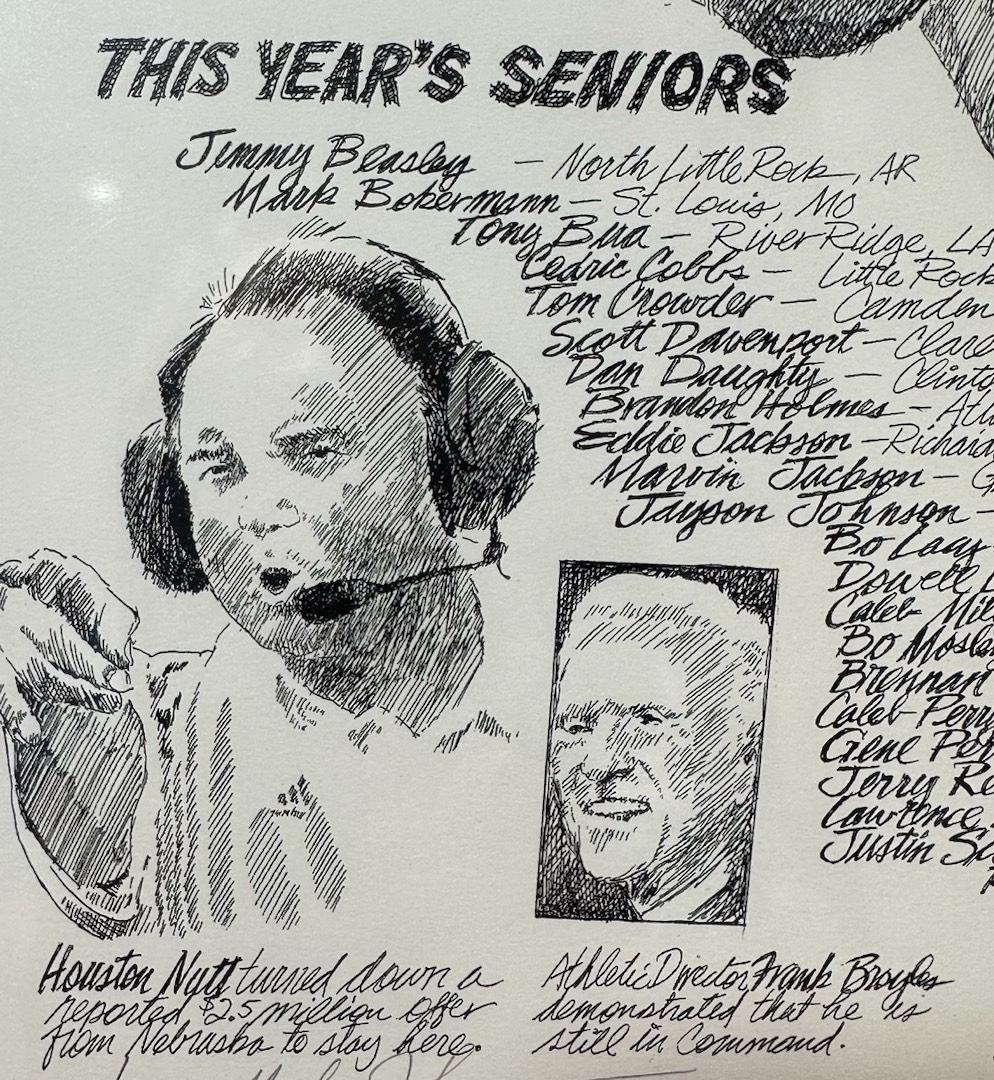 THIS YEAR'S SENIORS
Jimmy Beasley — North Little Rock, AR
Mark Bokermann — St. Louis, MO
Tony Bua — River Ridge, LA
Cedric Cobbs — Little Rock
Tom Crowder — Camden
Scott Davenport —
Dan Daughty —
Brandon Holmes —
Eddie Jackson —
Marvin Jackson —
Jayson Johnson —
Bo Lacy
Dowell
Caleb
Bo
Brennan
Caleb Perry
Gene
Jerry
Lawrence
Justin
Houston Nutt turned down a
reported $2.5 million offer
from Nebraska to stay here.
Athletic Director Frank Broyles
demonstrated that he is
still in command.